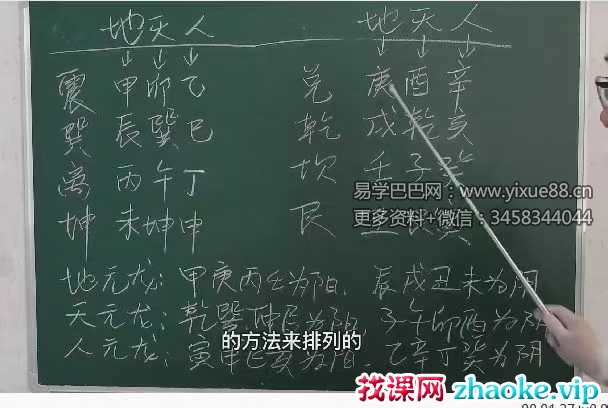 地天人 地天人
震 甲卯乙 兑 庚酉辛
巽 辰巽巳 乾 戌乾亥
离 丙午丁 坎 壬子癸
易学巴巴网：www.yixue88.cn
坤 未坤申 艮
更多资料+微信：3458344044
地元龙：甲庚丙壬为阳、辰戌丑未为阴
天元龙：乾巽坤艮为阳、子午卯酉为阴
的方法来排列的
人元龙：寅申巳亥为阳、乙辛丁癸为阴
找课网 zhaoke.vip